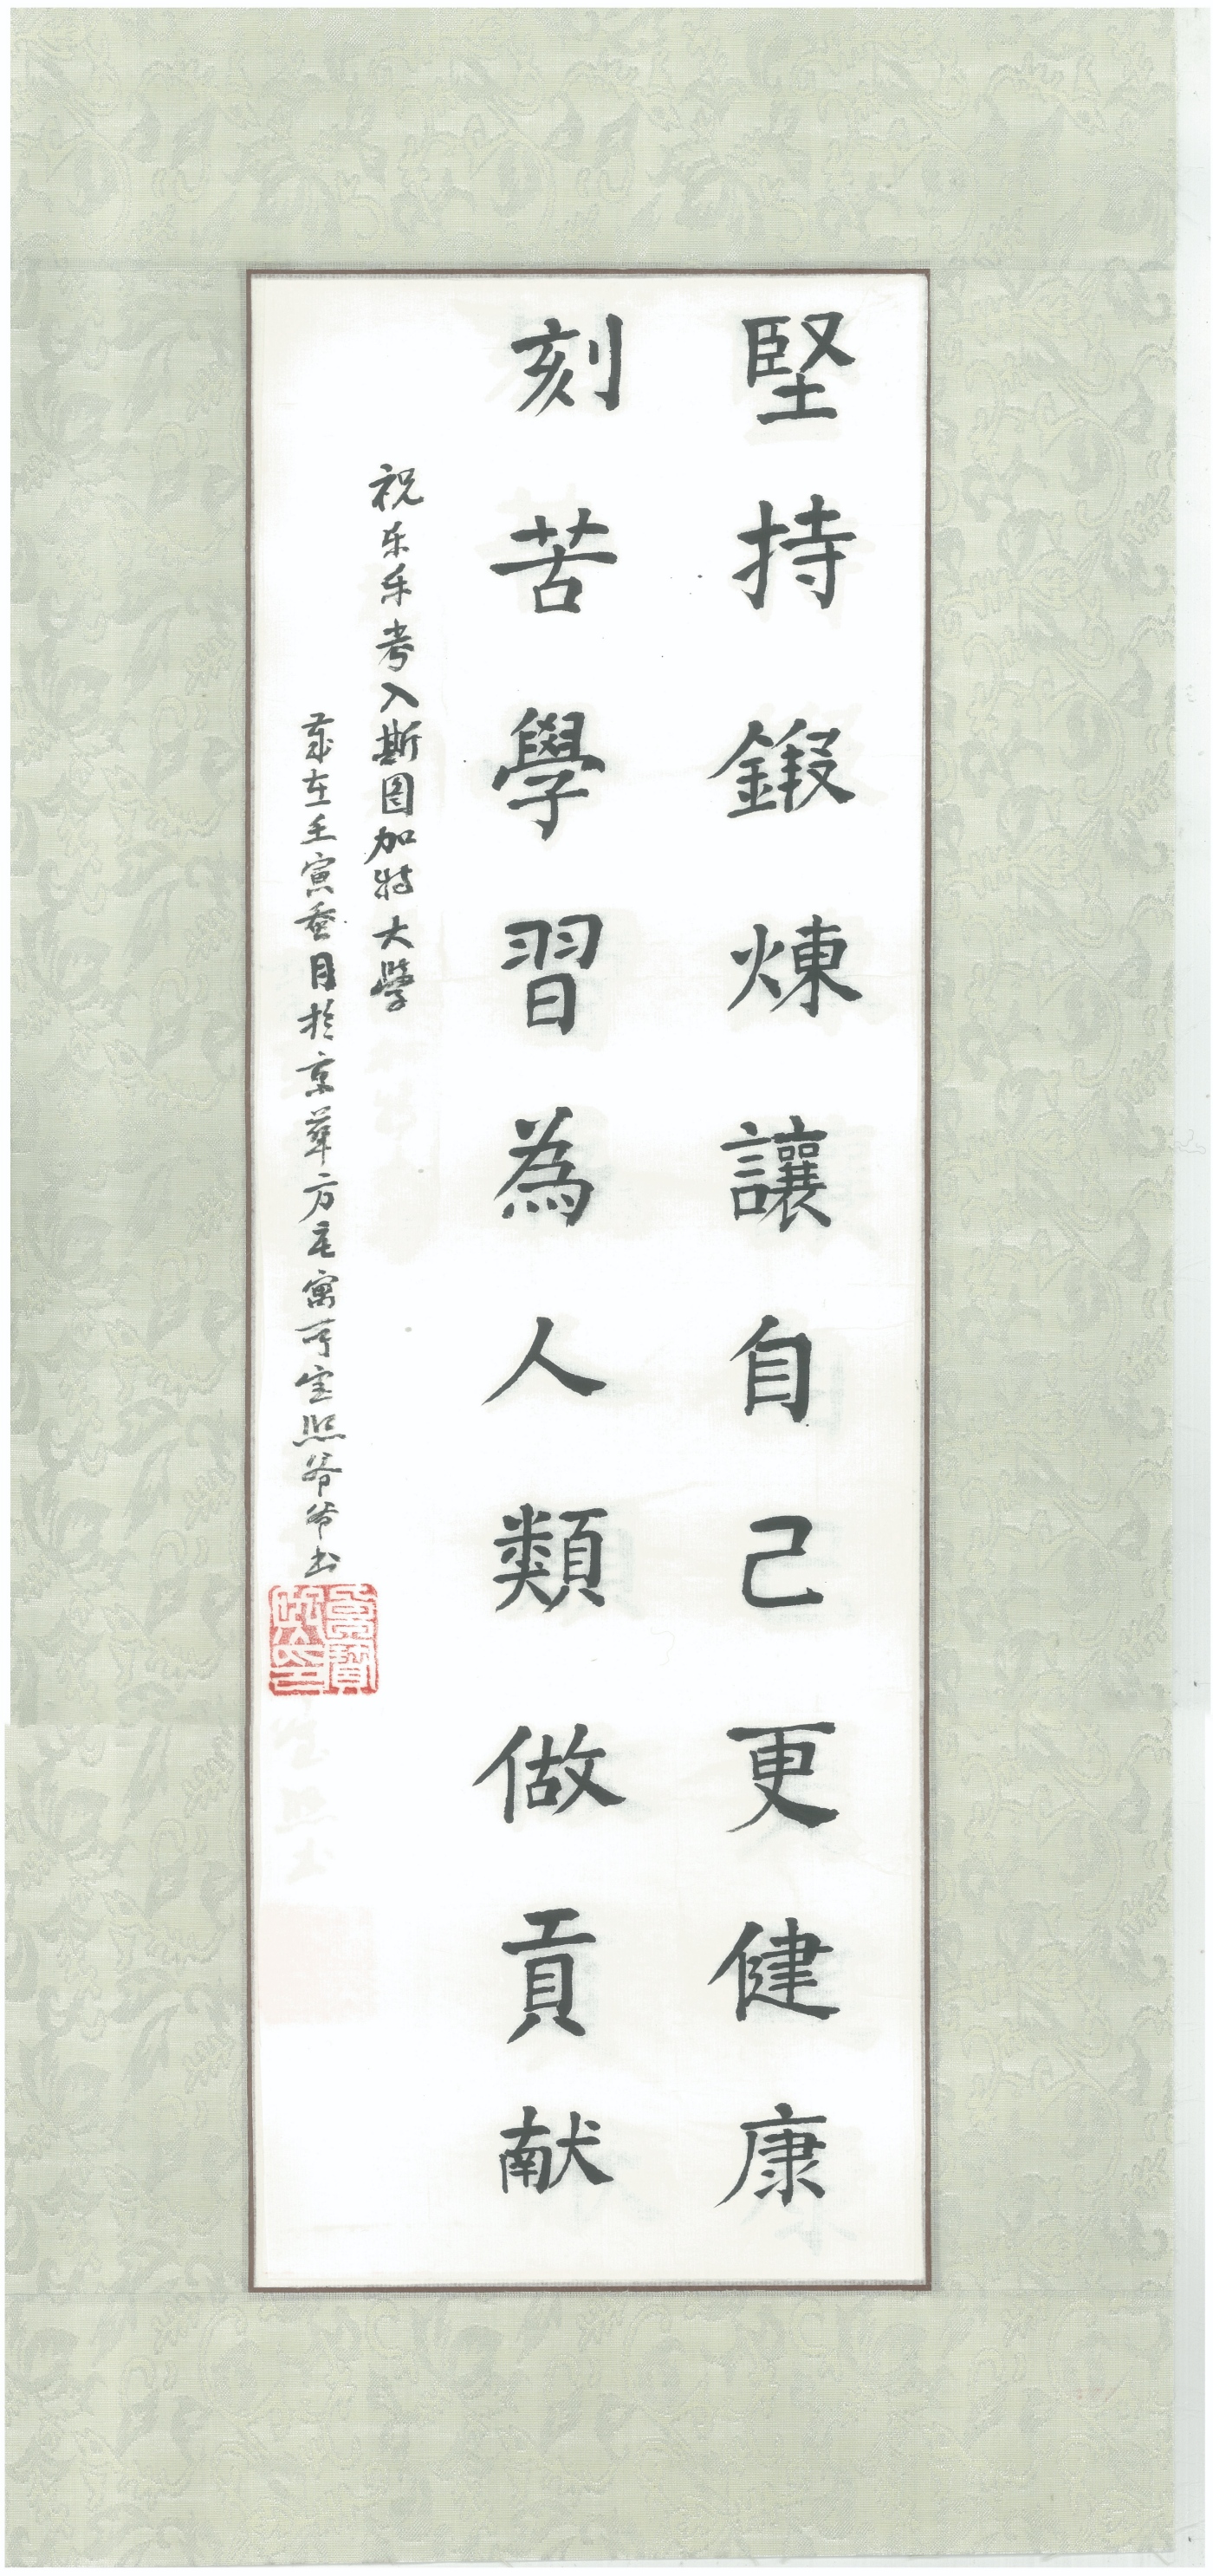 堅持鍛煉讓自己更健康
刻苦學習為人類做貢献
祝乐乐考入斯图加特大學
歲在壬寅蚕月於京華方庄寓所宝熙爷爷书